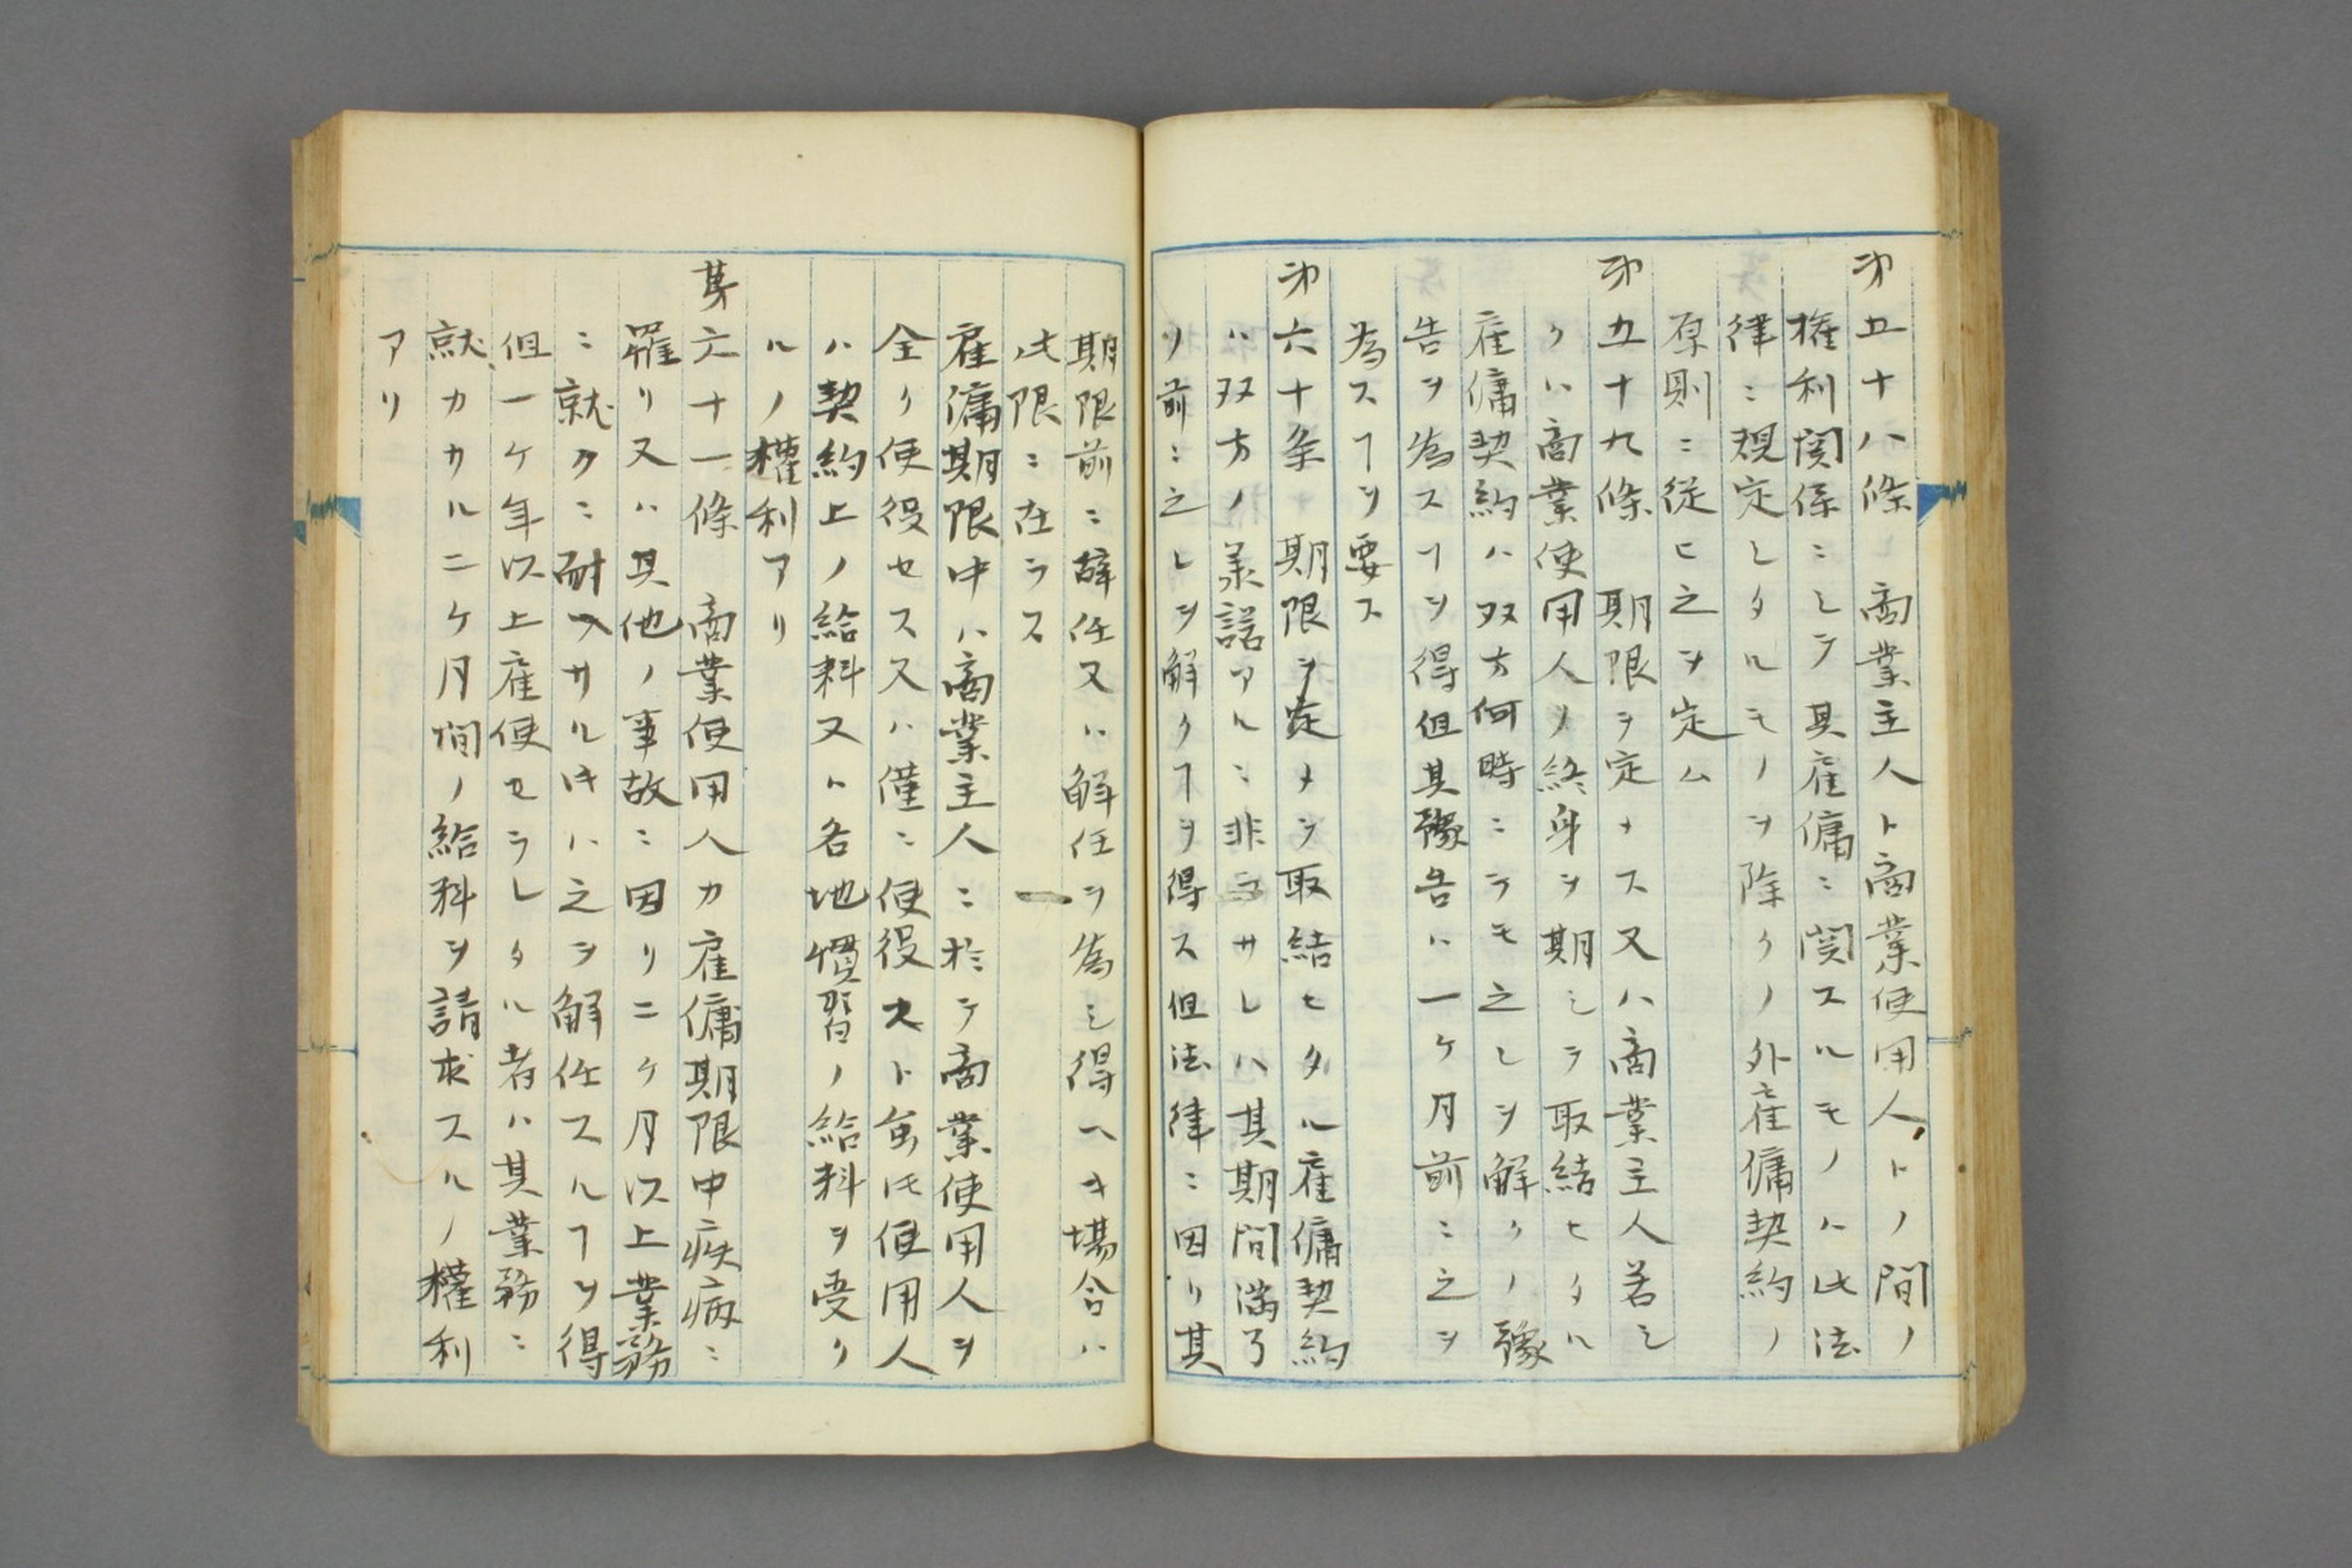 第五十八條 商業主人ト商業使用人トノ間ノ
権利関係ニシテ其雇傭ニ関スルモノハ此法
律ニ規定シタルモノヲ除クノ外雇傭契約ノ
原則ニ従ヒ之ヲ定ム
第五十九條 期限ヲ定メス又ハ商業主人若シ
クハ商業使用人ノ終身ヲ期シテ取結ヒタル
雇傭契約ハ双方何時ニテモ之レヲ解クノ豫
告ヲ為スヿヲ得但其豫告ハ一ケ月前ニ之ヲ
為スヿヲ要ス
第六十条 期限ヲ定メヲ取結ヒタル雇傭契約
ハ双方ノ承諾アルニ非ラサレハ其期間満了
ノ前ニ之レヲ解クヿヲ得ス但法律ニ因リ其
期限前ニ辞任又ハ解任ヲ為シ得ヘキ場合ハ
此限ニ在ラス
雇傭期限中ハ商業主人ニ於テ商業使用人ヲ
全ク使役セス又ハ僅ニ使役スト虽𪜈使用人
ハ契約上ノ給料又ハ各地慣習ノ給料ヲ受ク
ルノ權利アリ
第六十一條 商業使用人カ雇傭期限中疾病ニ
罹リ又ハ其他ノ事故ニ因リ二ケ月以上業務
ニ就クニ耐ヘサル𪜈ハ之ヲ解任スルヿヲ得
但一ケ年以上雇使セラレタル者ハ其業務ニ
就カサル二ケ月間ノ給料ヲ請求スルノ權利
アリ